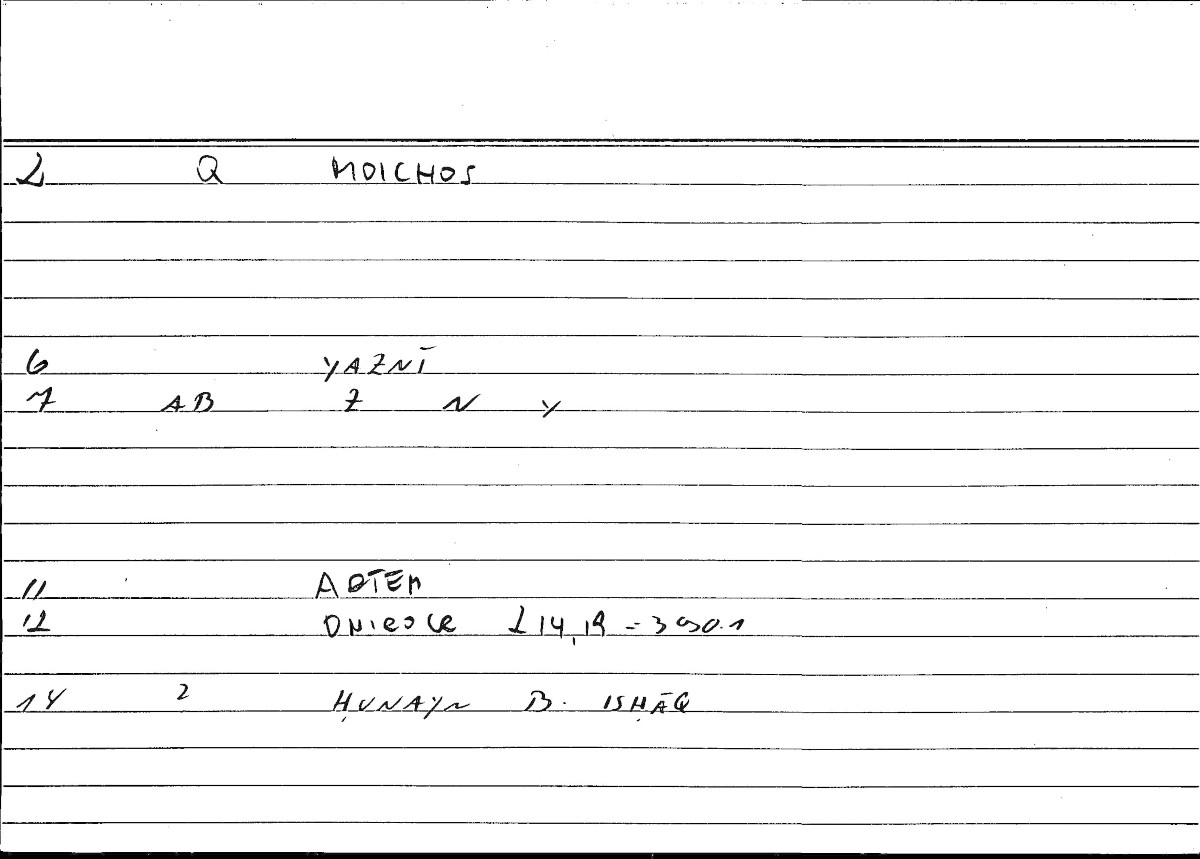 2 Q MOICHOS
6 YAZNĪ
7 AB Z N Y
11 ARTEM
12 ONIROCR 214,19 = 390.1
14 2 ḤUNAYN B. ISḤĀQ